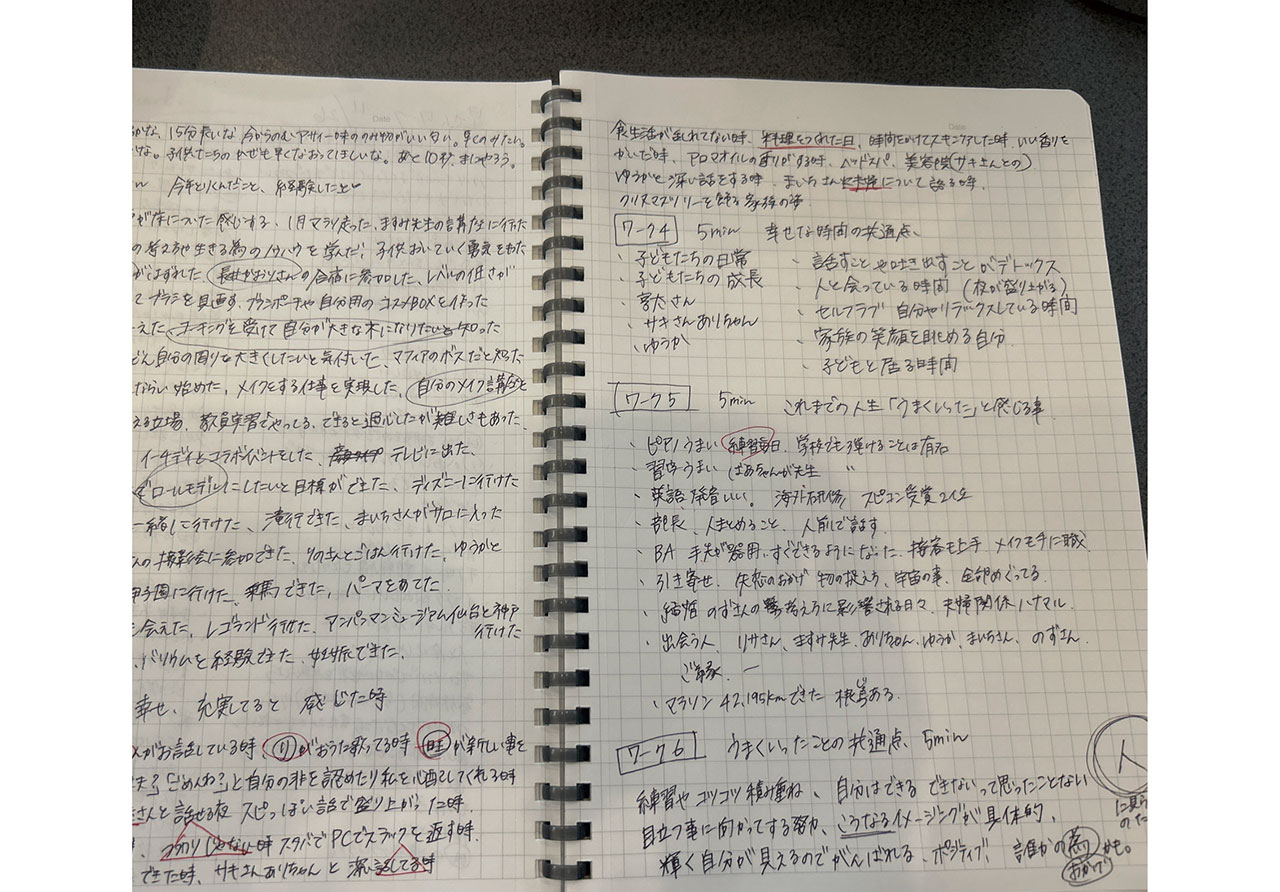 かな、15分長いな 今からのむアサイー味ののみ物がいい匂い。早くのみたい。
な。子供たちのかぜも早くなおってほしいな。あと10秒、まにやろう。
今年とりくんだこと、経験したこと
が体についた感じする、1月マラソン走った、ますみ先生の講座に行けた
の考え方や生きる為のノウハウを学んだ、子供おいていく勇気をもた
がはずれた 長井かおりさんの合宿に参加した、レベルの低さが
てブラシを買画す、ブラシポーチや自分用のコスメBOXを作った
えた、コーチングを受けて自分が大きな木になりたいと知った
どん自分の周りを大きくしたいと気付いた、マフィアのボスだと知った
ならい始めた、メイクをする仕事を実現した、自分のメイク講座を
える立場、教員実習でやってる、できると過心したが難しさもあった、
イーチデイとコラボイベントをした、テレビに出た、
ロールモデルにしたいと目標ができた、ディズニーに行けた
一緒に行けた、滝行できた、まいちさんがサロに入った
の撮影会に参加できた、りのさんとごはん行けた、ゆうかと
子園に行けた、乗馬できた、パーマをあてた
会えた、レゴランド行けた、アンパンマンミュージアム仙台と神戸
行けた
バリウムを経験できた、妊娠できた、
幸せ、充実してると 感じた時
がお話している時、リがおうた歌ってる時 旺が新しい事を
夫？ごめんね？」と自分の非を認めたり私を心配してくれる時
さんと話せる夜 スピっぽい話で盛り上がった時、
時 スタバでPCでスラックを返す時、
できた時、サキさんありちゃんと 深い話してる時
食生活が乱れてない時、料理をつくれた日、時間をかけてスキンケアした時 いい香りを
かいだ時、アロマオイルの香りがする時、ヘッドスパ、美容院(サキさんとの)
ゆうかと深い話をする時、まいちさんと未来について語る時、
クリスマスツリーを飾る家族の姿
ワーク4 5min 幸せな時間の共通点、
・子どもたちの日常 ・話すことや吐き出すことがデトックス
・子どもたちの成長 ・人と会っている時間 (夜が盛り上がる)
・さん ・セルフラブ 自分やリラックスしている時間
・サキさんありちゃん ・家族の笑顔を眺める自分
・ゆうか ・子どもと居る時間
ワーク5 5min これまでの人生「うまくいった」と感じる事
・ピアノうまい 練習毎日、学校でも弾けることは有名
・習字うまい ばあちゃんが先生 〃
・英語、発音いい。海外研修 スピコン受賞2位
・部長、人まとめること、人前で話す
・BA 手先が器用、すぐできるようになった、接客も上手 メイクモチに職
・引き寄せ、失恋のおかげ 物の捉え方、宇宙の事、全部めぐってる
・結婚 のずさんの考え方に影響される日々、夫婦関係ハナマル
・出会う人、リサさん、ますみ先生、ありちゃん、ゆうか、まいちさん、のずさん
ご縁、ー
・マラソン 42,195kmできた 根気ある
ワーク6 うまくいったことの共通点、5min
練習やコツコツ積み重ね、自分はできる できないって思ったことない
目立つ事に向かってする努力、こうなるイメージングが具体的、
輝く自分が見えるのでがんばれる、ポジティブ、誰かの為かも。
おかげ
人